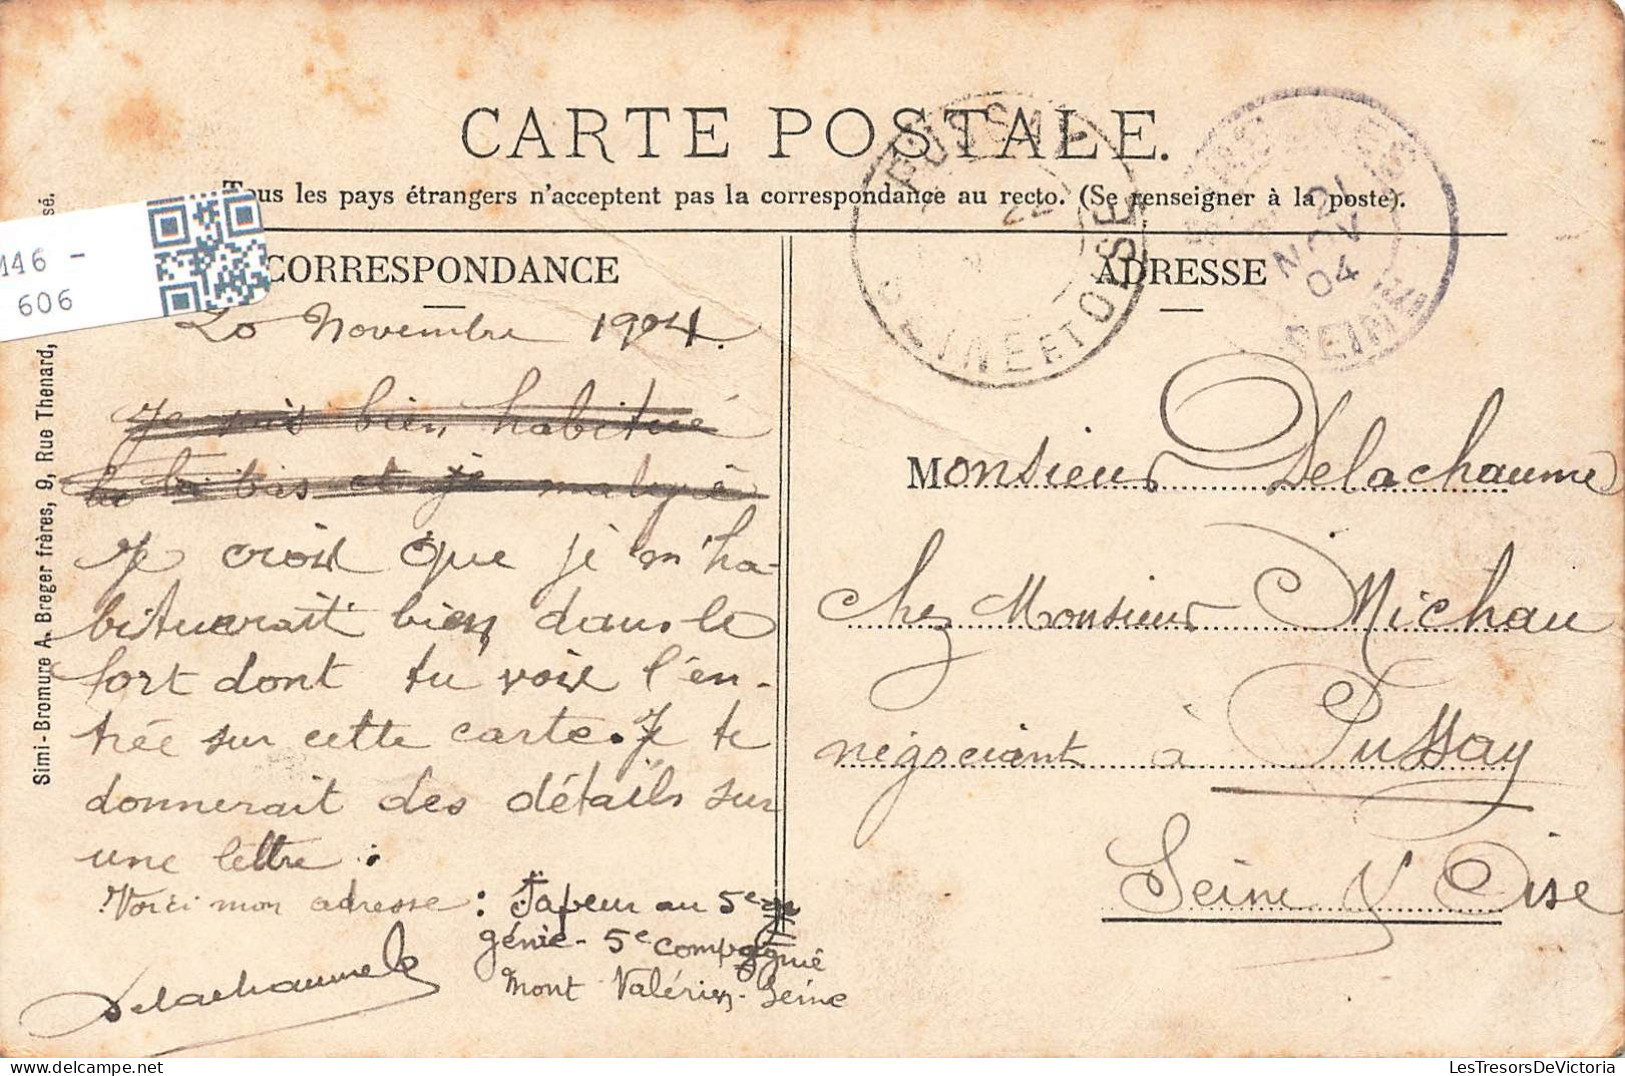 CARTE POSTALE.
Tous les pays étrangers n'acceptent pas la correspondance au recto. (Se renseigner à la poste).
CORRESPONDANCE
20 Novembre 1904.
Je suis bien habitué
Je crois que je m'ha-
bituerait bien dans le
fort dont tu vois l'en-
trée sur cette carte. Je te
donnerait des détails sur
une lettre.
Voici mon adresse : Sapeur au 5e
génie - 5e compagnie
Mont Valérien - Seine
Delachaume
ADRESSE
Monsieur Delachaume
chez Monsieur Michau
négociant à Pussay
Seine & Oise
PUSSAY
22
SEINE ET OISE
21
NOV
04
SEINE
Simi-Bromure A. Breger frères, 9, Rue Thenard,
M46 -
606
LesTresorsDeVictoria